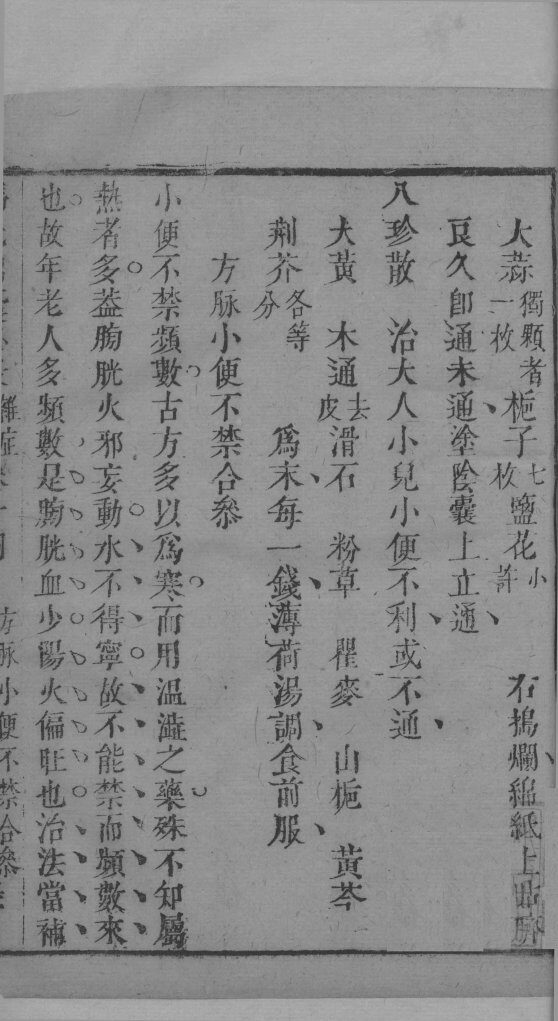 大蒜獨顆者一枚 梔子七枚 鹽花小許 右搗爛綿紙上貼臍
良久卽通未通塗陰囊上立通
八珍散 治大人小兒小便不利或不通
大黃 木通去皮 滑石 粉草 瞿麥 山梔 黃芩
荆芥各等分 爲末每一錢薄荷湯調食前服
方脉小便不禁合參
小便不禁頻數古方多以爲寒而用溫澁之藥殊不知屬
熱者多葢膀胱火邪妄動水不得寧故不能禁而頻數來
也故年老人多頻數是膀胱血少陽火偏旺也治法當補
雜症 方脉小便不禁合參